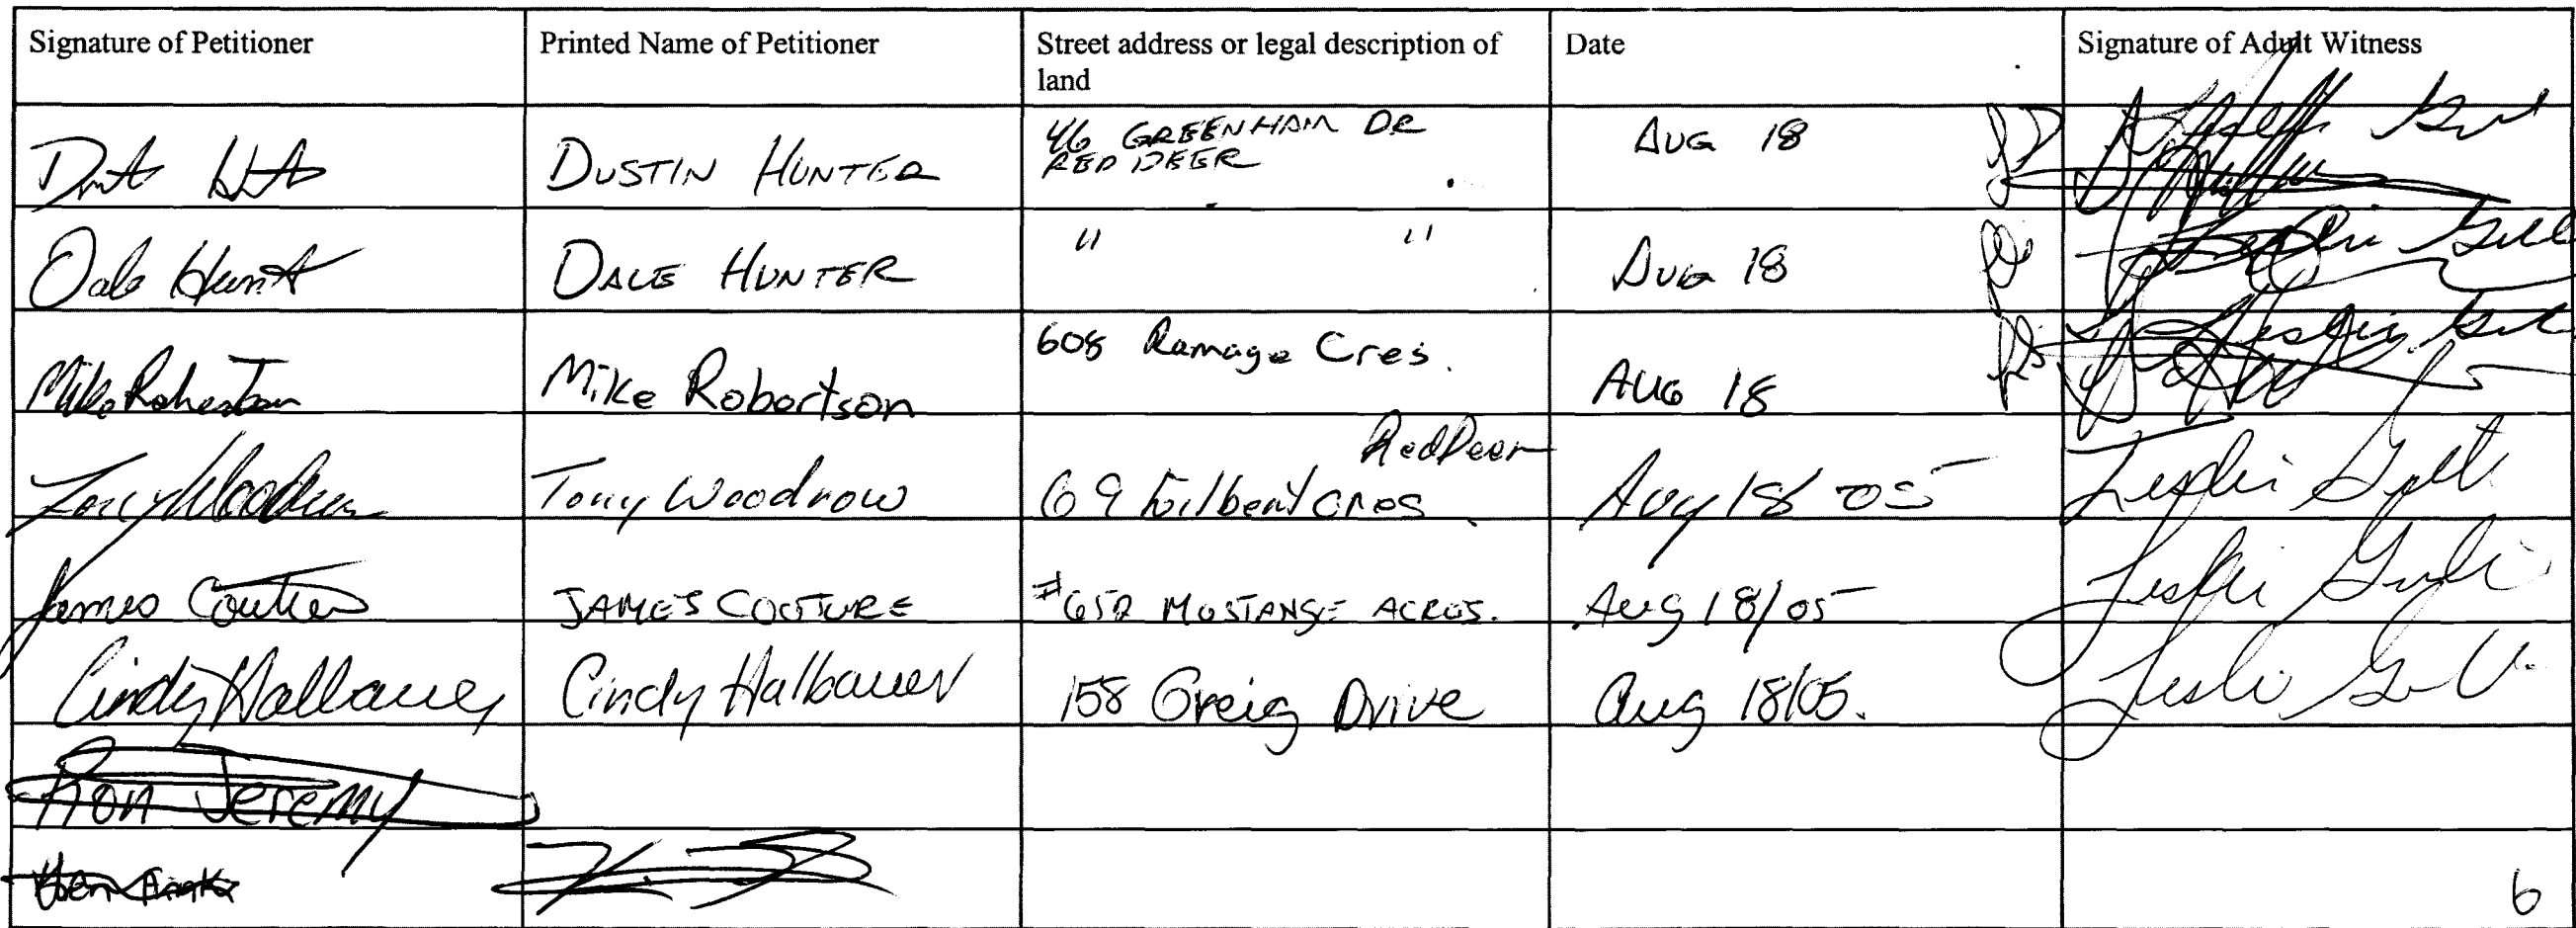 Signature of Petitioner
Printed Name of Petitioner
Street address or legal description of
land
Date
Signature of Adult Witness
DUSTIN HUNTER
46 GREENHAM DR
RED DEER
AUG 18
Dale Hunt
DALE HUNTER
" "
AUG 18
Mike Robertson
Mike Robertson
608 Ramage Cres.
AUG 18
Tony Woodrow
Tony Woodrow
Red Deer
69 Cres
Aug 18 05
Leslie
James Couture
JAMES COUTURE
#652 MUSTANGE ACRES.
Aug 18/05
Leslie
Cindy Halbauer
Cindy Halbauer
158 Greig Drive
Aug 18/05.
Leslie
Ron Jeremy
6